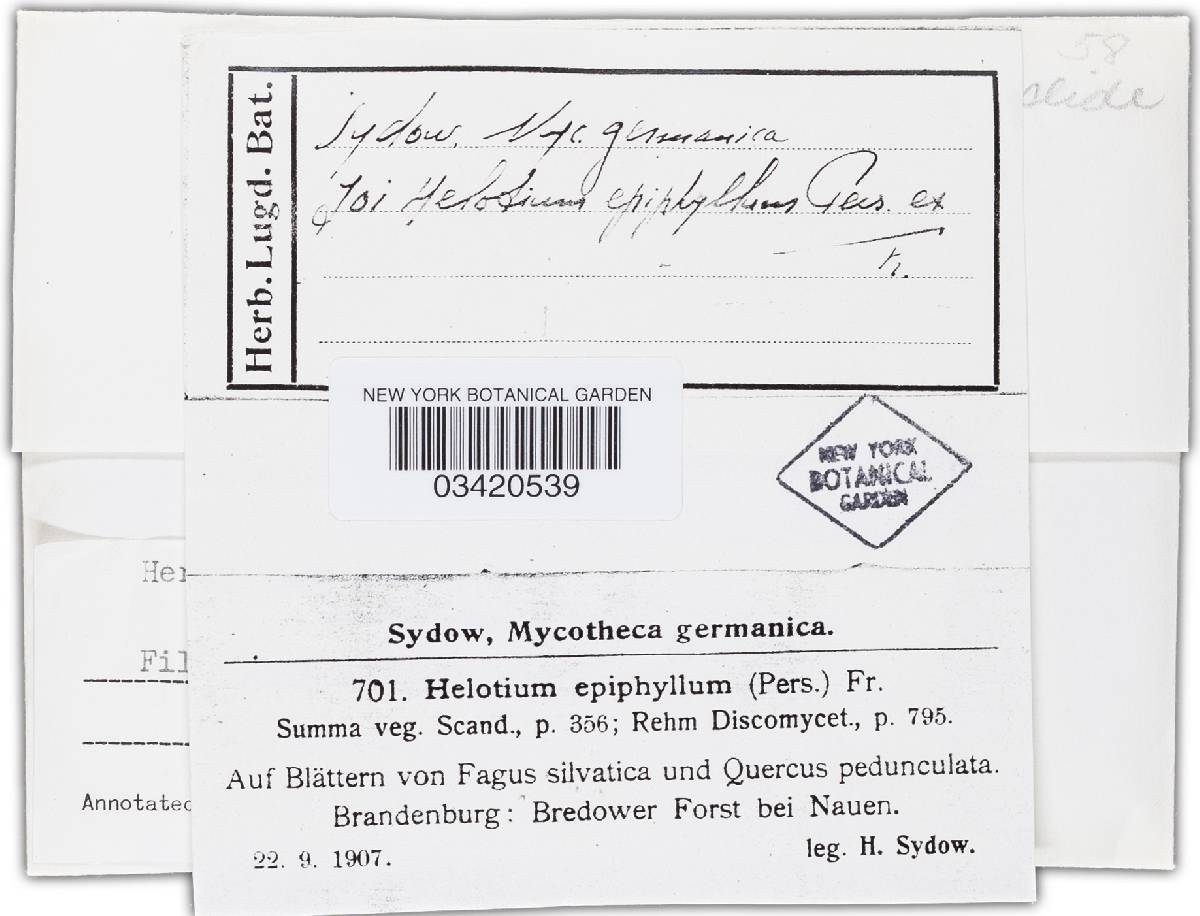 58
slide
Herb. Lugd. Bat.
Sydow. Myc. germanica
701 Helotium epiphyllum Pers. ex
Fr.
NEW YORK BOTANICAL GARDEN
03420539
NEW YORK
BOTANICAL
GARDEN
Her
Fil
Annotated
Sydow, Mycotheca germanica.
701. Helotium epiphyllum (Pers.) Fr.
Summa veg. Scand., p. 356; Rehm Discomycet., p. 795.
Auf Blättern von Fagus silvatica und Quercus pedunculata.
Brandenburg: Bredower Forst bei Nauen.
22. 9. 1907.
leg. H. Sydow.